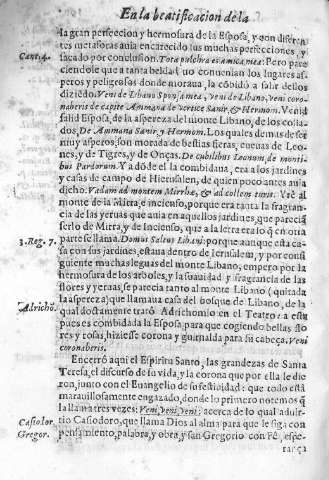 En la beatificacion de la
la gran perfeccion y hermosura de la Esposa, y con diferen
tes metaforas auia encarecido sus muchas perfecciones, y
Cant. 4. sacado por conclusion. Tota pulchra es amica mea: Pero pare
ciendole que a tanta beldad no conuenian los lugares as-
peros y peligrosos donde moraua, la cõbidó a salir dellos
diziẽdo. Veni de Libano Sponsa mea, veni de Libano, veni coro-
naberis de capite Ammana de vertice Sanir, & Hermom. Venid
salid Esposa, de la aspereza del monte Libano, de los colla-
dos, De Ammana Sanir, y Hermom. Los quales demas de ser
muy asperos, son morada de bestias fieras, cueuas de Leo-
nes, y de Tigres, y de Onças. De cubilibus Leonum, de monti-
bus Pardorum. Y adõde el la combidaua, era a los jardines
y casas de campo de Hierusalen, de quien poco antes auia
dicho. Vadam ad montem Mirrhæ, & ad collem turis. Vee al
monte de la Mirra, e incienso, porque era tanta la fragran-
cia de las yeruas que auia en aquellos jardines, que parecia
serlo de Mirra, y de Incienso, que a la letra era lo q̃ en otra
3. Reg. 7. parte se llama. Domus Saltus Libani: porque aunque esta ca-
sa con sus jardines, estaua dentro de Ierusalem, y por consi
guiente muchas leguas del monte Libano, empero por la
hermosura de los arboles, y la suauidad y fragancia de las
flores y yeruas, se parecia tanto al monte Libano (quitada
la aspereza) que llamaua casa del bosque de Libano, de la
Adrichõ. qual doctamente trató Adrichomio en el Teatro: a esta
pues es combidada la Esposa, para que cogiendo bellas flo
res y rosas, hiziesse corona y guirnalda para su cabeça. Veni
coronaberis.
Encerró aqui el Espiritu Santo, las grandezas de Santa
Teresa, el discurso de su vida, y la corona que por ella le die
ron, junto con el Euangelio de su festiuidad: que todo está
marauillosamente engazado, donde lo primero notemos q̃
la llama tres vezes: Veni, veni, veni; acerca de lo qual aduir-
Casiolor. tio Casiodoro, que llama Dios al alma para que le siga con
Gregor. pensamiento, palabra, y obra, y san Gregorio con Fè, espe-
rança